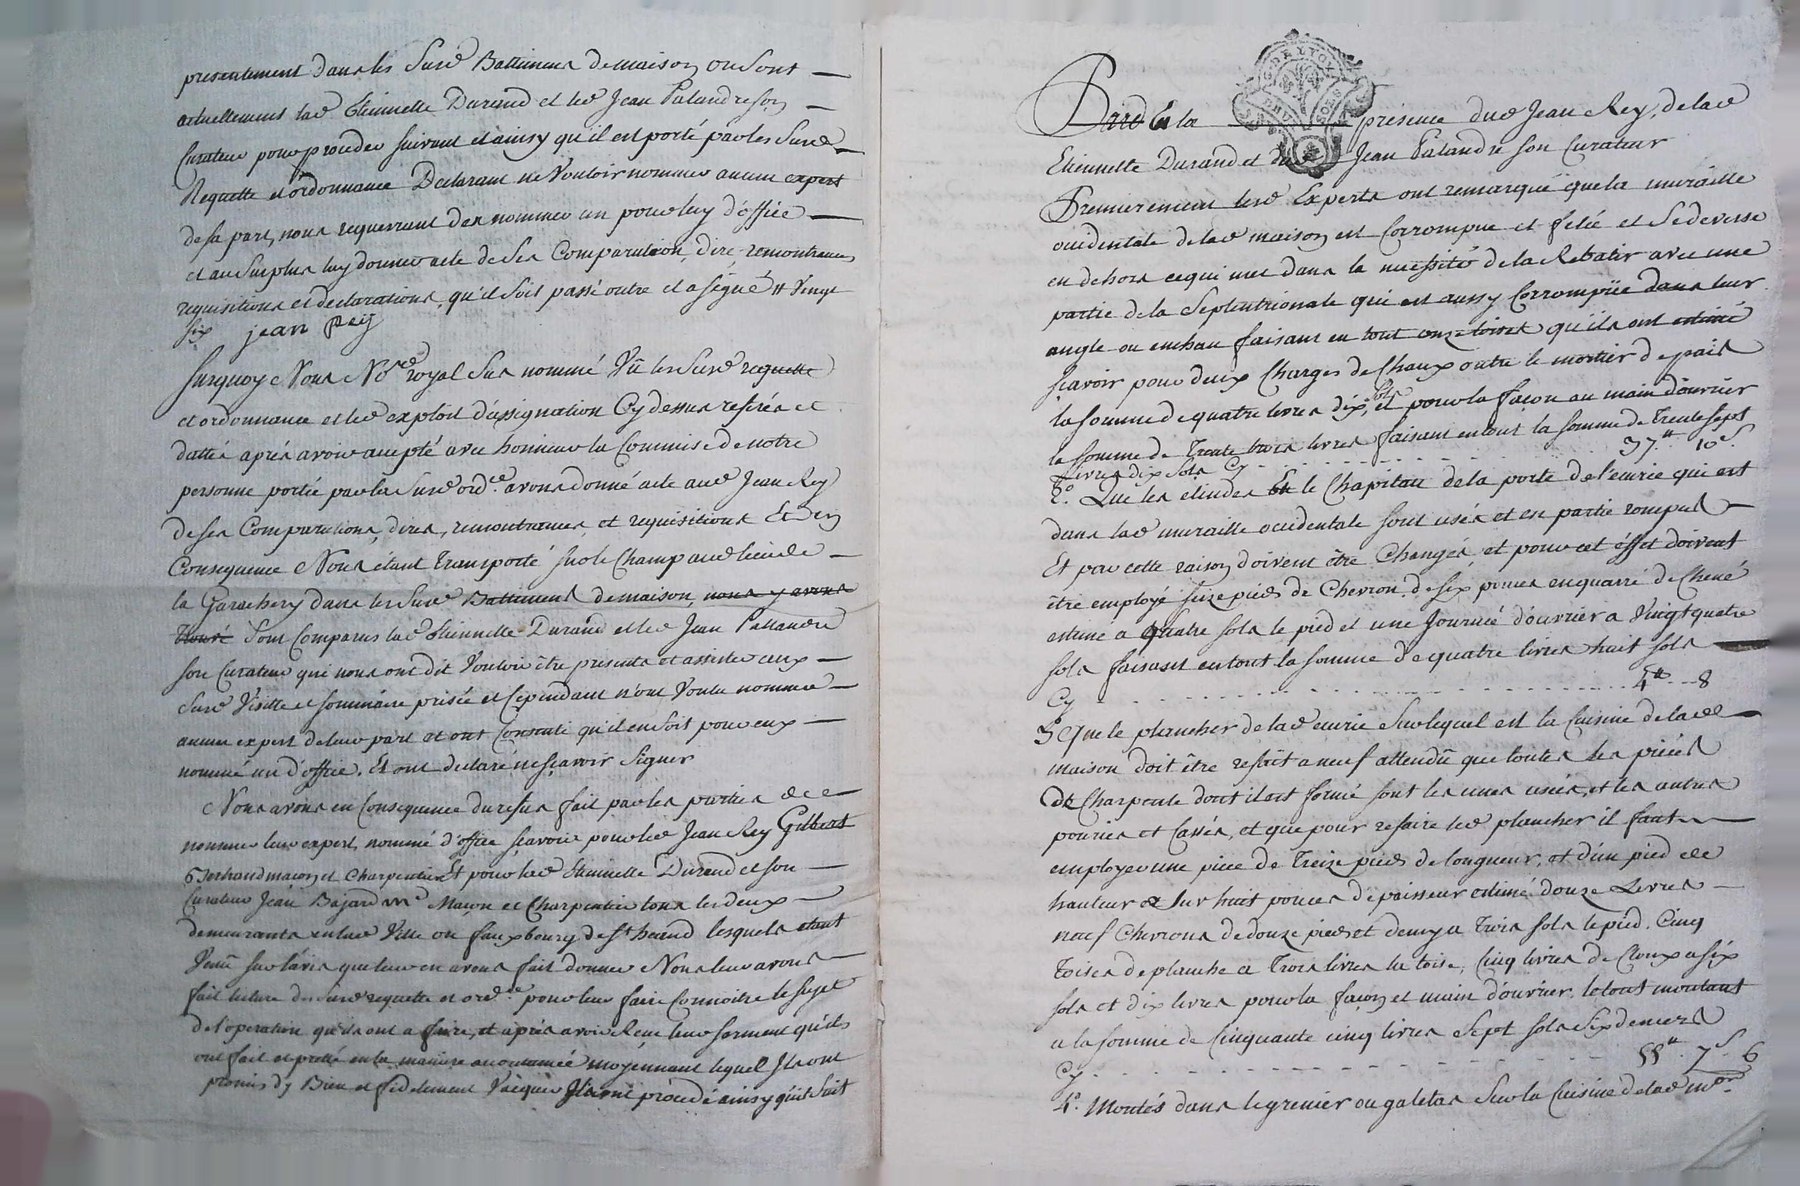 presentement dans les Surd. Battiments de maison ou sont
actuellement lad. Etiennette Durand et led. Jean Palandre son
Curateur pour proceder suivant et ainsy qu'il est porté par les Surd.
Requette et ordonnance Declarant ne Vouloir nommer aucun expert
de sa part, nous requerrant d'en nommer un pour luy d'office
et au Surplus luy donner acte de ses Comparution, dire, remontrances
requisitions et declarations, qu'il soit passé outre et a signé // Vingt
six jean Rey
Surquoy Nous No.re royal Sus nommé Vû les Surd. requette
et ordonnance et led. exploit d'assignation Cy dessus referés et
dattés aprés avoir accepté avec honneur la Commise de notre
personne portée par la Surd. ord.ce avons donné acte aud. Jean Rey
de ses Comparutions, dires, remontrances, et requisitions Et en
Consequence Nous étant transporté sur le Champ aud. lieu de
la Garachery dans les Surd. Battiments de maison, nous y avons
trouvé Sont Comparus lad. Etiennette Durand et led. Jean Pallandre
son Curateur qui nous ont dit Vouloir être presents et assister aux
Surd. Visitte et sommaire prisée et Cependant n'ont Voulu nommer
aucun expert de leur part et ont Consenti qu'il en soit pour eux
nommé un d'office. Et ont declaré ne sçavoir Signer
Nous avons en Consequence du refus fait par les parties de
nommer leur expert, nommé d'office sçavoir pour led. Jean Rey Gilbert
maçon et Charpentier Et pour lad. Etiennette Durand et son
Curateur Jean Bajard m.e Maçon et Charpentier tous les deux
demeurants en lad. Ville ou fauxbourg de St. haënd lesquels etant
Venû sur l'avis que leur en avons fait donner Nous leur avons
fait lecture des Surd. requette et ord.ce pour leur faire Connoître le sujet
de l'operation qu'ils ont a faire, et aprés avoir Reçu leur serment qu'ils
ont fait et presté en la maniere accoutumée moyennant lequel Ils ont
promis d'y Bien et fidelement Vacquer Ils ont procédé ainsy qu'il Suit
G. DE LYON
Et la presence dud. Jean Rey, de lad.
Etiennette Durand et dud. Jean Palandre son Curateur
Premierement lesd. Experts ont remarqué que la muraille
occidentale de lad. maison est Corrompue et felée et Se deverse
en dehors ce qui met dans la necessité de la Rebatir avec une
partie de la Septentrionale qui est aussy Corrompüe dans leur
angle ou enchan faisant en tout onze toises qu'ils ont estimé
sçavoir pour deux Charges de Chaux outre le mortier de païs
la somme de quatre livres dix sols, et pour la façon au main d'ouvrier
la somme de trente trois livres faisant en tout la somme de trente sept
livres dix sols Cy . . . . . . . . . . . . 37.# 10s
2.o Que les elindes et le Chapitau de la porte de l'ecurie qui est
dans lad. muraille occidentale sont usés et en partie rompus
Et par cette raison doivent être Changés, et pour cet éffet doivent
être employé seize pieds de Chevron de six pouces en quarré de Chené
estimé a quatre sols le pied et une Journée d'ouvrier a Vingt quatre
sols faisant en tout la somme de quatre livres huit sols
Cy . . . . . . . . . . . . 4.# . . 8
3.o Que le plancher de lad. ecurie Sur lequel est la Cuisine de lad.
maison doit être refait a neuf attendû que toutes les piéces
de Charpente dont il est formé sont les unes usées, et les autres
pouries et Cassés, et que pour refaire led. plancher il faut
employer une piece de Treize pieds de longueur, et d'un pied de
hauteur Sur huit pouces d'epaisseur estimé douze Livres
neuf Chevrons de douze pieds et demy a Trois sols le pied. Cinq
toises de planche a Trois livres la toise, Cinq livres de Cloux a six
sols et dix livres pour la façon et main d'ouvrier, le tout montant
a la somme de Cinquante cinq livres Sept sols Six deniers
Cy . . . . . . . . . . . . 55.# 7.s 6
4.o Montés dans le grenier ou galetas Sur la Cuisine de lad. mon